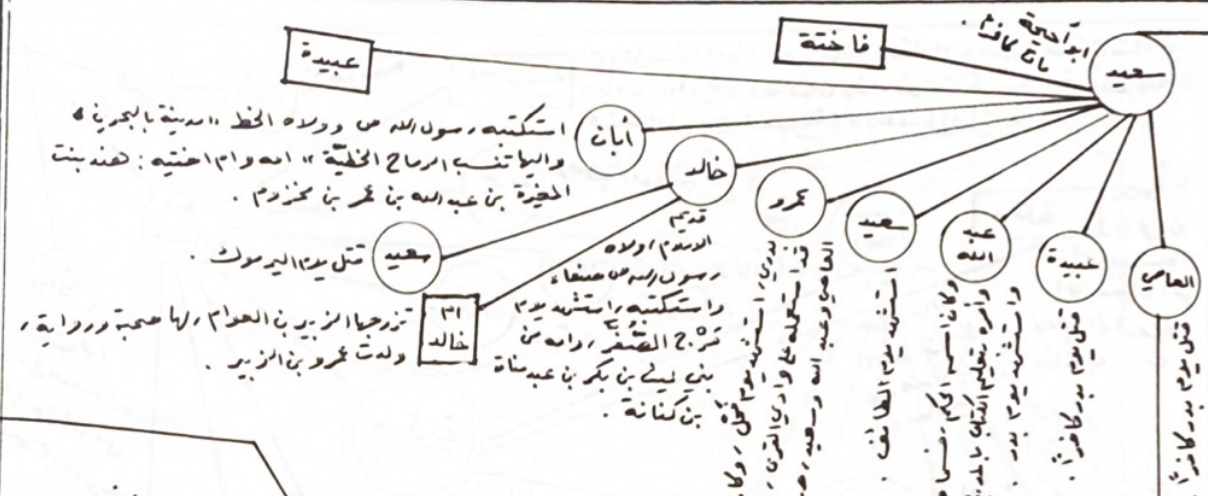 سعيد
ابو أحيحة
مات كافراً.
فاختة
عبيدة
أبان
استكتبه رسول الله ص وولاه الخط «مدينة بالبحرين»
واليها تنسب الرماح الخطيّة» امه وام اختيه: هند بنت
المغيرة بن عبد الله بن عمر بن مخزوم.
خالد
قديم
الاسلام ولاه
رسول الله ص صنعاء
واستكتبه، استشهد يوم
مَرْج الصُّفَّر، امه من
بني ليث بن بكر بن عبد مناة
بن كنانة.
سعيد
قتل يوم اليرموك.
ام
خالد
تزوجها الزبير بن العوام، لها صحبة ورواية،
ولدت عمرو بن الزبير.
عمرو
استشهد يوم فحل، وكا
قد استعمله على وادي القرى،
العاصي وعبد الله وسعيد،
سعيد
استشهد يوم الطائف.
عبد
الله
وكان اسمه الحكم،
وأمره بتعليم الكتاب بالمدينة
واستشهد يوم بدر.
عبيدة
قتل يوم بدر كافراً.
العاصي
قتل يوم بدر كافراً